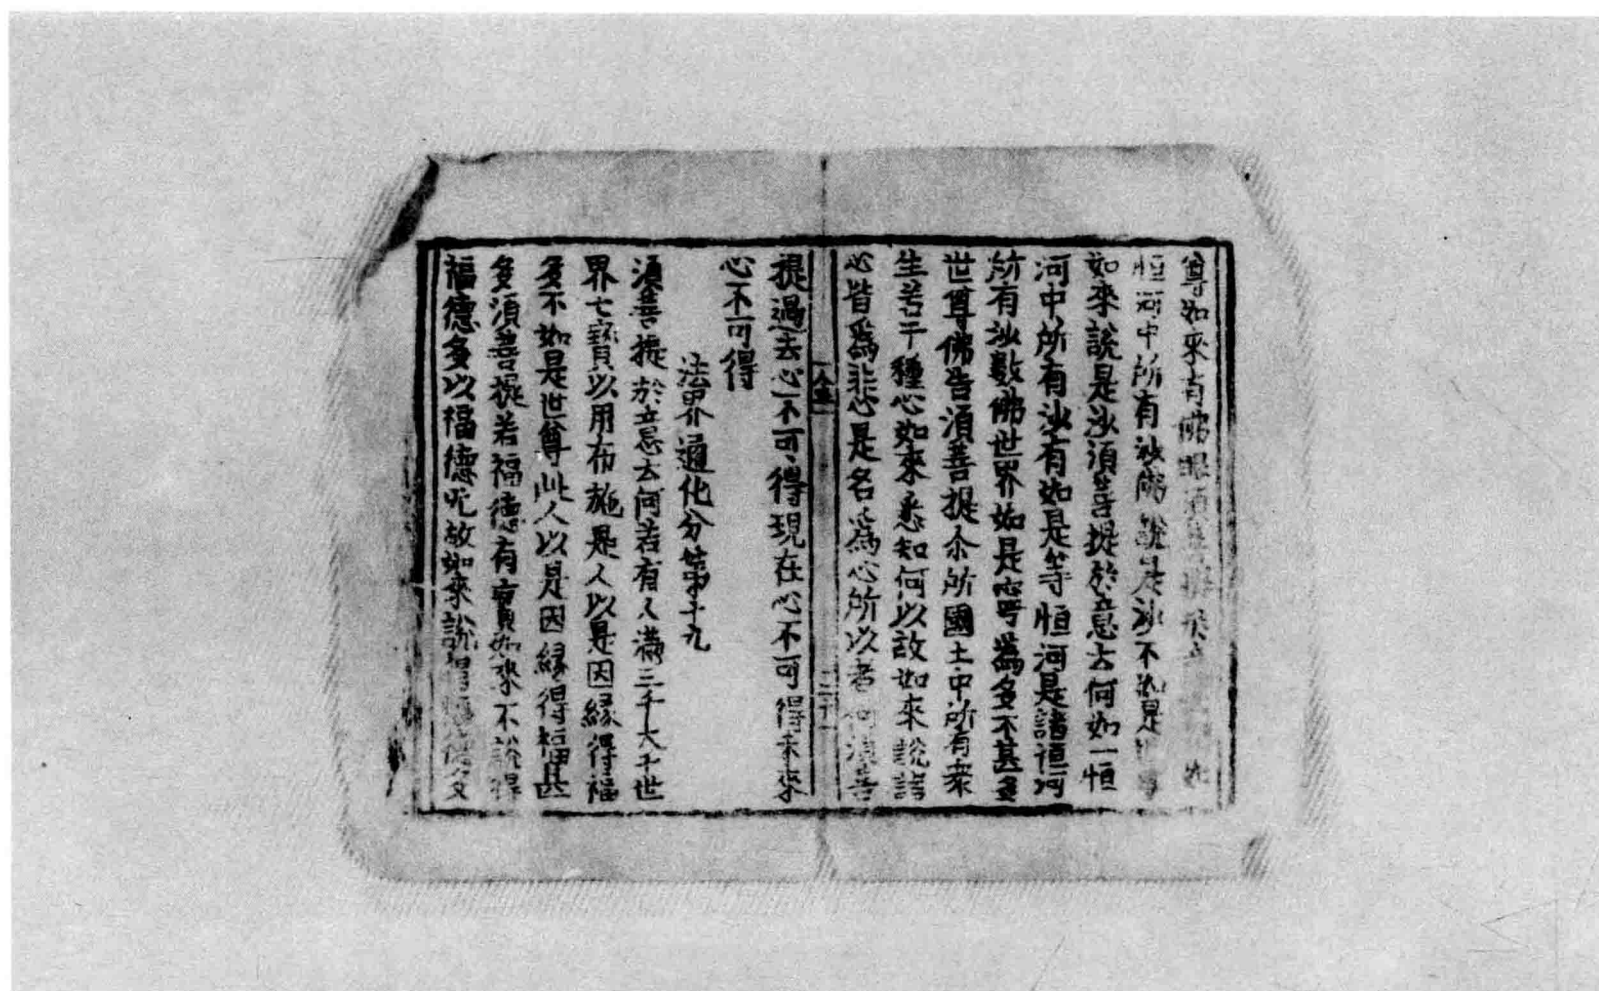 尊如來有佛眼須菩提於意 如
恒河中所有沙佛說是沙不如是世尊
如來說是沙須菩提於意云何如一恒
河中所有沙有如是等恒河是諸恒河
所有沙數佛世界如是寧爲多不甚多
世尊佛告須菩提尒所國土中所有衆
生若干種心如來悉知何以故如來說諸
心皆爲非心是名爲心所以者何須菩
金
二十一
提過去心不可得現在心不可得未來
心不可得
法界通化分第十九
須菩提於意云何若有人滿三千大千世
界七寶以用布施是人以是因緣得福
多不如是世尊此人以是因緣得福甚
多須菩提若福德有實如來不說得
福德多以福德无故如來說得福德多